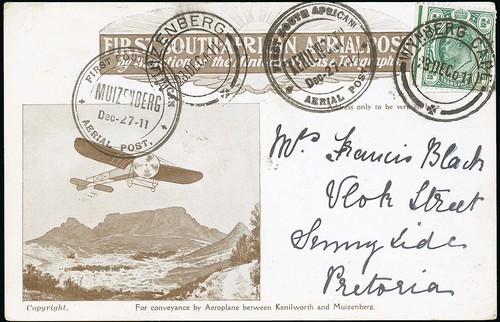 FIRST SOUTH AFRICAN AERIAL POST
by Sanction of the Minister of Posts & Telegraphs
MUIZENBERG
FIRST SOUTH AFRICAN
MUIZENBERG
Dec-27-11
AERIAL POST.
FIRST SOUTH AFRICAN
MUIZENBERG
Dec-27-11
AERIAL POST.
WYNBERG CAPE
28 DE 11
Address only to be written here.
Mrs Francis Black
Vlok Street
Sunny Side
Pretoria
Copyright.
For conveyance by Aeroplane between Kenilworth and Muizenberg.